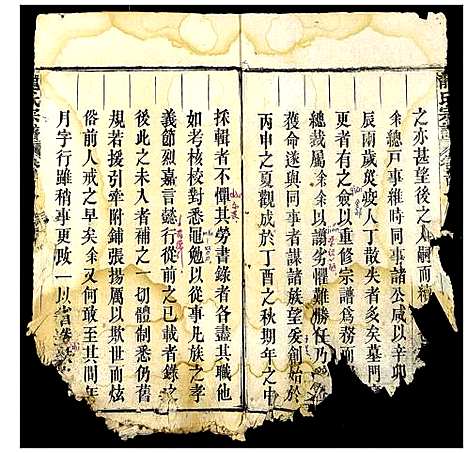 之亦甚望後之人嗣而續
余總戸事維時同事諸公咸以辛卯
辰兩歲災疫人丁散失者多矣墓門
更者有之僉以重修宗譜為務而
總裁屬余余以謭劣懼難勝任乃
獲命遂與同事者謀諸族望爰創始於
丙申之夏觀成於丁酉之秋期年之中
採輯者不憚其勞書錄者各盡其職他
如考核校對悉黽勉以從事凡族之孝
義節烈嘉言懿行從前之已載者錄之
後此之未入者補之一切體制悉仍舊
規若援引牽附鋪張揚厲以欺世而炫
俗前人戒之早矣余又何敢至其間年
月字行雖稍事更政一以省